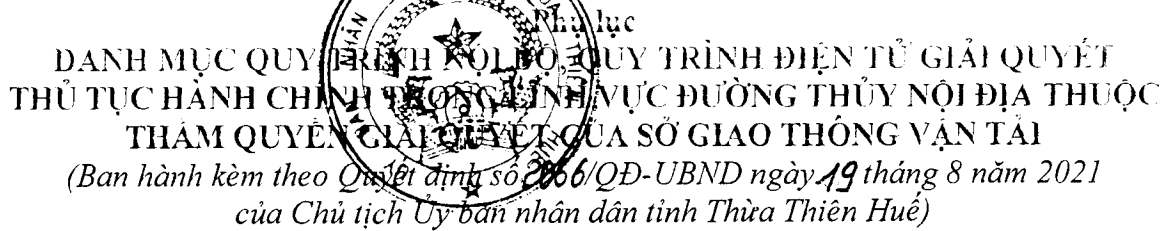 Phụ lục
DANH MỤC QUY TRÌNH NỘI BỘ, QUY TRÌNH ĐIỆN TỬ GIẢI QUYẾT
THỦ TỤC HÀNH CHÍNH TRONG LĨNH VỰC ĐƯỜNG THỦY NỘI ĐỊA THUỘC
THẨM QUYỀN GIẢI QUYẾT CỦA SỞ GIAO THÔNG VẬN TẢI
(Ban hành kèm theo Quyết định số 2066/QĐ-UBND ngày 19 tháng 8 năm 2021
của Chủ tịch Ủy ban nhân dân tỉnh Thừa Thiên Huế)